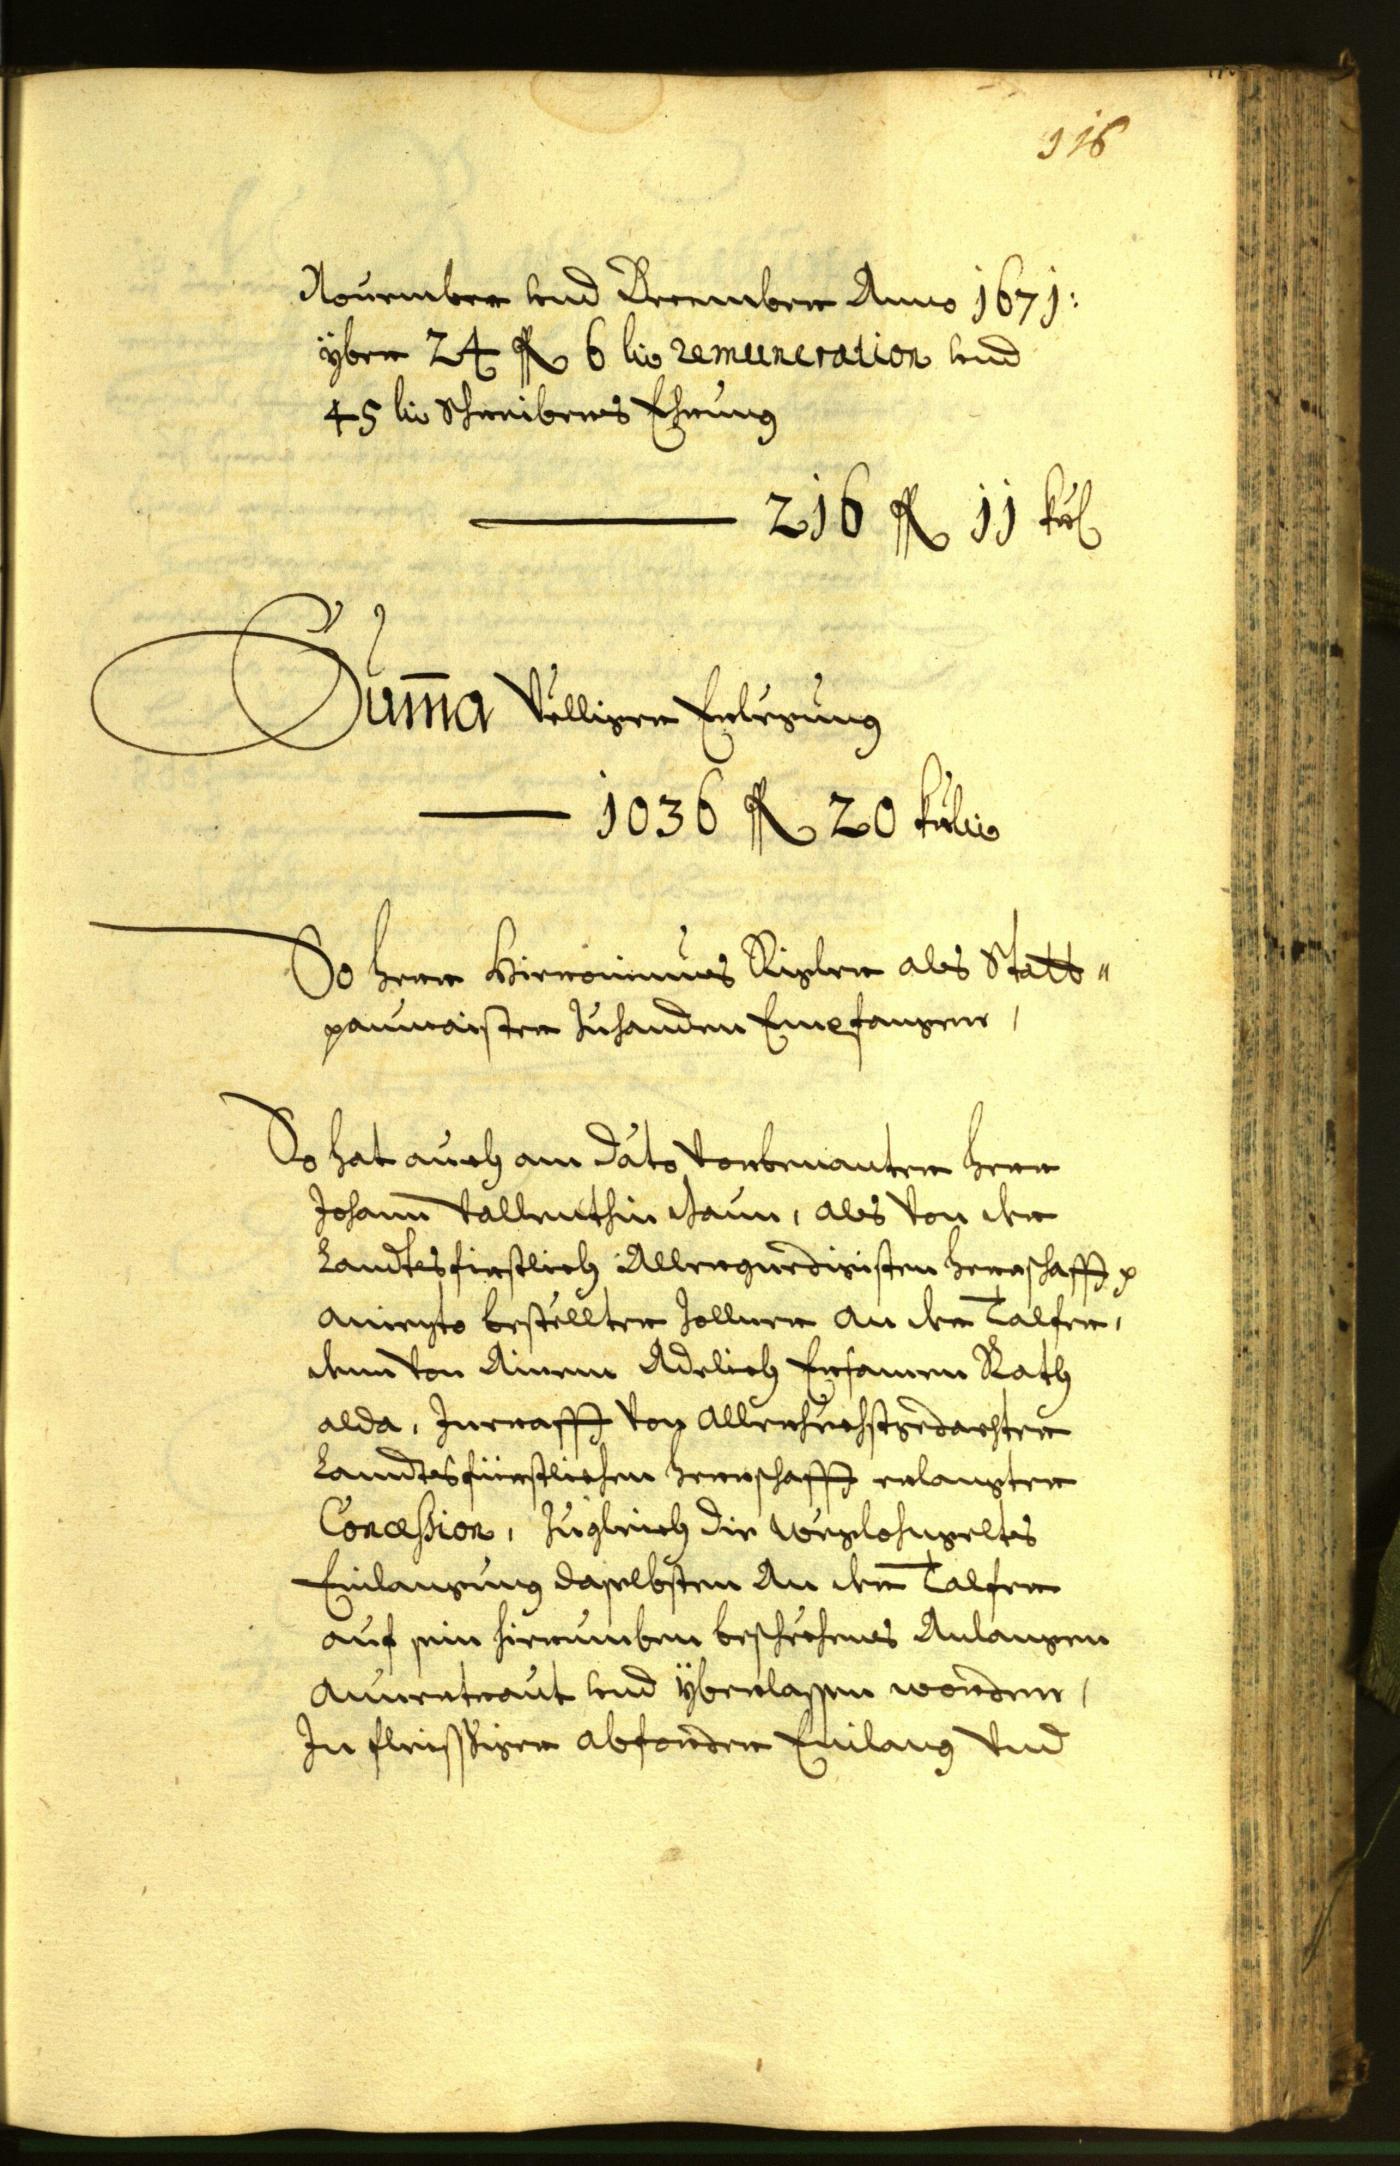 116
Nouember vnd December Anno 1671:
yber 24 fl 6 kr remuneration vnd
45 kr Schreibers Ehrung
216 fl 11 kr
Sum̄a Völliger Erlegung
1036 fl 20 kr
So herr Hieronimus Rigler als Statt„
paumaister Zuhanden Empfangen,
So hat auch am dato Vorbenanter herr
Johann Vallenthin Daum, als Von der
Landtesfirstlich Allergnedigisten herrschafft
aniezto bestellter Zollner an der Talfer,
deme Von Ainem Adelich Ersamen Rath
alda, Incrafft Von Allerhechstgedachter
Landtesfürstlichen herrschafft erlangter
Concession, Zugleich die Weglohngelts
Einlangung daselbsten An der Talfer
auf sein hierumben beschechenes Anlangen
Anuertraut vnd yberlassen worden,
In fleissiger abforder Einlang Vnd